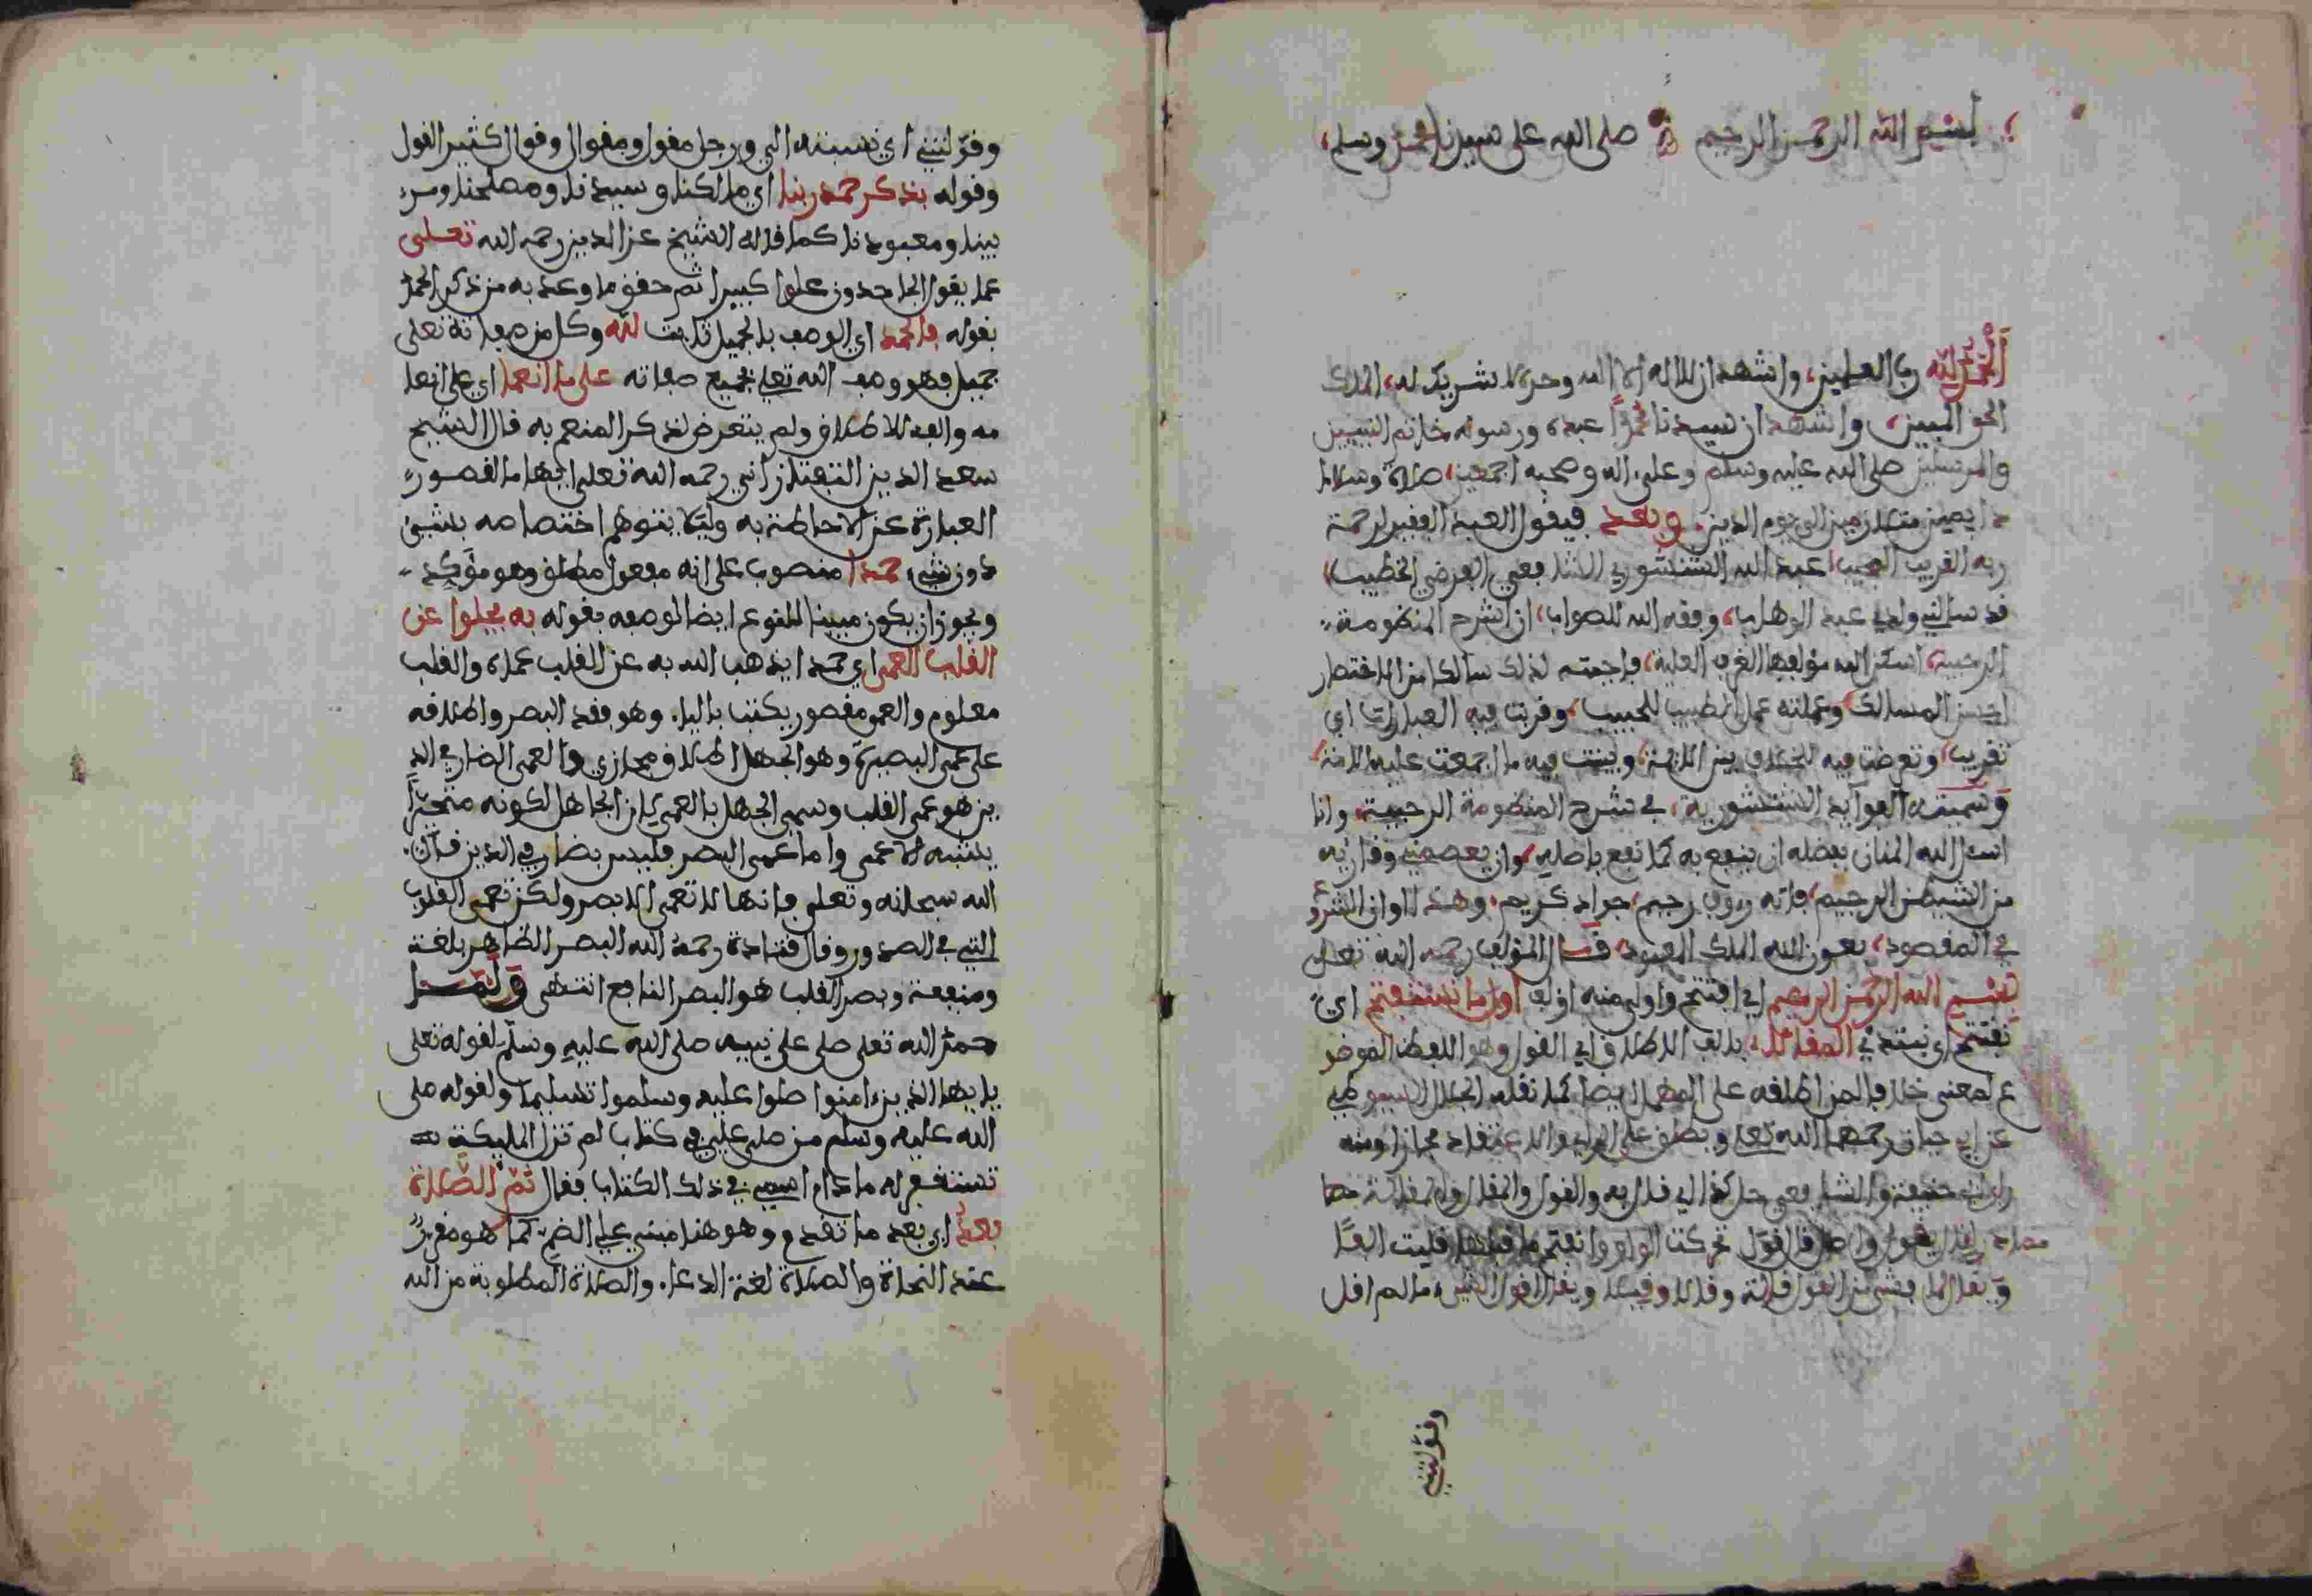 بسم الله الرحمن الرحيم صلى الله على سيدنا محمد وسلم
الحمد لله رب العلمين، وأشهد ان لا اله الا الله وحده لا شريك له، الملك
الحق المبين، وأشهد ان سيدنا محمدا عبده ورسوله خاتم النبيين
والمرسلين صلى الله عليه وسلم وعلى اله وصحبه اجمعين، صلاة وسلاما
دايمين متلازمين الى يوم الدين، وبعد فيقول العبد الفقير لرحمة
ربه القريب المجيب، عبد الله الشنشوري الشافعي الفرضي الخطيب،
قد سالني ولدي عبد الوهاب، وفقه الله للصواب، ان اشرح المنظومة
الرحبية، اسكن الله مؤلفها الغرف العلية، فاجبته لذلك سالكا من الاختصار
احسن المسالك، وعملته عمل الطبيب للحبيب، وقربت فيه العبارات اي
تقريب، وتعرضت فيه للخلاف بين الايمة، وبينت فيه ما اجمعت عليه الامة،
وسميته الفوايد الشنشورية، في شرح المنظومة الرحبية، وانا
اسئل الله المنان بفضله ان ينفع به كما نفع باصله، وان يعصمني وقاريه
من الشيطن الرجيم، فانه رؤوف رحيم، جواد كريم، وهذا اوان الشروع
في المقصود، بعون الله الملك المعبود، قال المؤلف رحمه الله تعلى
بسم الله الرحمن الرحيم اي افتتح واولى منه اؤلف اول ما نستفتح اي
نفتتح اي نبتدئ المقالا، بالف الاطلاق اي القول وهو اللفظ الموضو
ع لمعنى خلافا لمن اطلقه على المهمل ايضا كما نقله الجلال السيوطي
عن ابي حيان رحمهما الله تعلى ويطلق على الراي والاعتقاد مجازا ومنه
راي ابي حنيفة والشافعي حل كذا اي قال به والقول والمقال والمقالة
مصادر لقال يقول واصل قال قول تحركت الواو وانفتح ما قبلها قلبت الفا
ويقال لما فشى من القول قالة وقالا وقيلا ويقال اقولتني ما لم اقل
وقولتني
وقولتني اي نسبته الي ورجل مقول ومقوال وقوال كثير القول
وقوله بذكر حمد ربنا اي مالكنا وسيدنا ومصلحنا ومر
بينا ومعبودنا كما قاله الشيخ عز الدين رحمه الله تعلى
عما يقول الجاحدون علوا كبيرا ثم حقق ما وعد به من ذكر الحمد
بقوله فالحمد اي الوصف بالجميل ثابت لله وكل من صفاته تعلى
جميل فهو وصف الله تعلى بجميع صفاته على ما انعما اي على انعا
مه والفه للاطلاق ولم يتعرض لذكر المنعم به قال الشيخ
سعد الدين التفتازاني رحمه الله تعلى ايهاما لقصور
العبارة عن الاحاطة به وليلا يتوهم اختصاصه بشيئ
دون شيء حمدا منصوب على انه مفعول مطلق وهو مؤكد
ويجوز ان يكون مبينا للنوع ايضا لوصفه بقوله به يجلوا عن
القلب العمى اي حمدا يذهب الله به عن القلب عماه والقلب
معلوم والعمى مقصور يكتب بالياء وهو فقد البصر واطلاقه
على عمى البصيرة وهو الجهل اطلاق مجازي والعمى الضار في الد
ين هو عمى القلب وسمي الجهل بالعمى لان الجاهل لكونه متحيرا
يشبه الاعمى واما عمى البصر فليس بضار في الدين قال
الله سبحانه وتعلى فانها لا تعمى الابصر ولكن تعمى القلوب
التي في الصدور وقال قتادة رحمه الله البصر الظاهر بلغة
ومنفعة وبصر القلب هو البصر النافع انتهى ولما
حمد الله تعلى صلى على نبيه صلى الله عليه وسلم لقوله تعلى
يايها الذين ءامنوا صلوا عليه وسلموا تسليما ولقوله صلى
الله عليه وسلم من صلى علي في كتاب لم تزل المليكة
تستغفر له ما دام اسمي في ذلك الكتاب فقال ثم الصلاة
بعد اي بعد ما تقدم وهو هنا مبني على الضم كما هو مقرر
عند النحاة والصلاة لغة الدعاء والصلاة المطلوبة من الله